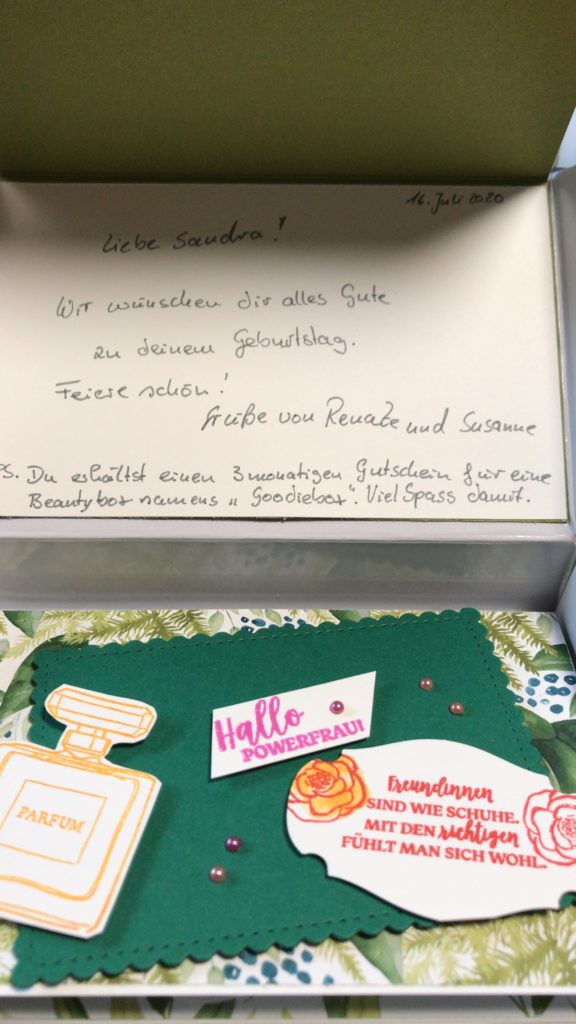 16. Juli 2020
Liebe Sandra!
Wir wünschen dir alles Gute
zu deinem Geburtstag.
Feiere schön!
Grüße von Renate und Susanne
PS. Du erhältst einen 3monatigen Gutschein für eine
Beautybox namens „Goodiebox". Viel Spass damit.
Hallo
POWERFRAU!
PARFUM
Freundinnen
SIND WIE SCHUHE.
MIT DEN richtigen
FÜHLT MAN SICH WOHL.